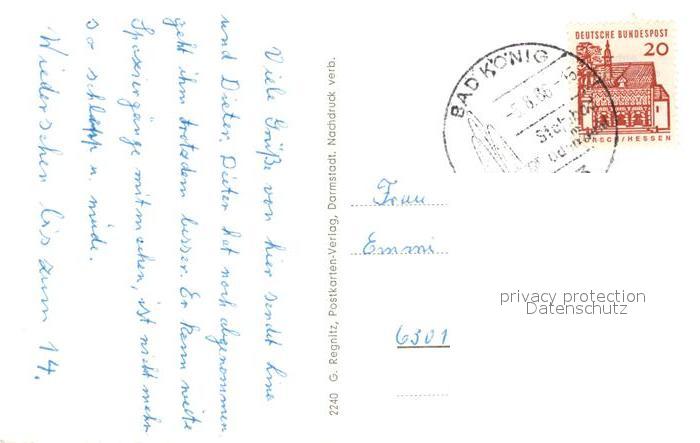 Viele Grüße von hier sendet Eine
und Dieter. Dieter hat noch abgenommen
geht ihm trotzdem besser. Er kann weite
Spaziergänge mitmachen, ist nicht mehr
so schlapp u. müde.
Wiedersehen bis zum 14.
2240 G. Regnitz, Postkarten-Verlag, Darmstadt. Nachdruck verb.
BAD KÖNIG
-5.8.66-15
DEUTSCHE BUNDESPOST
20
LORSCH/HESSEN
Frau
Emmi
6301
privacy protection
Datenschutz